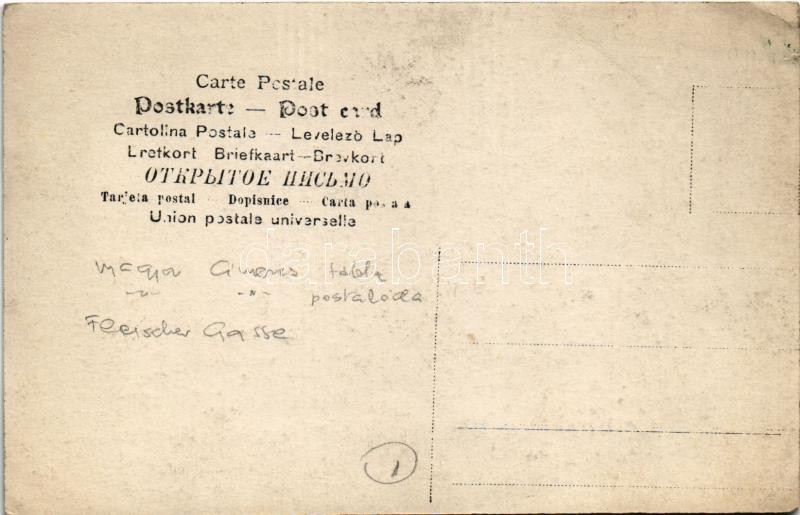 Carte Postale
Postkarte — Post card
Cartolina Postale — Levelező Lap
Lretkort Briefkaart—Brevkort
ОТКРЫТОЕ ПИСЬМО
Tarjeta postal · Dopisnice · Carta postala
Union postale universelle
darabanth
magyar címeres tábla
-"- -"- postaláda
Fleischer Gasse
1